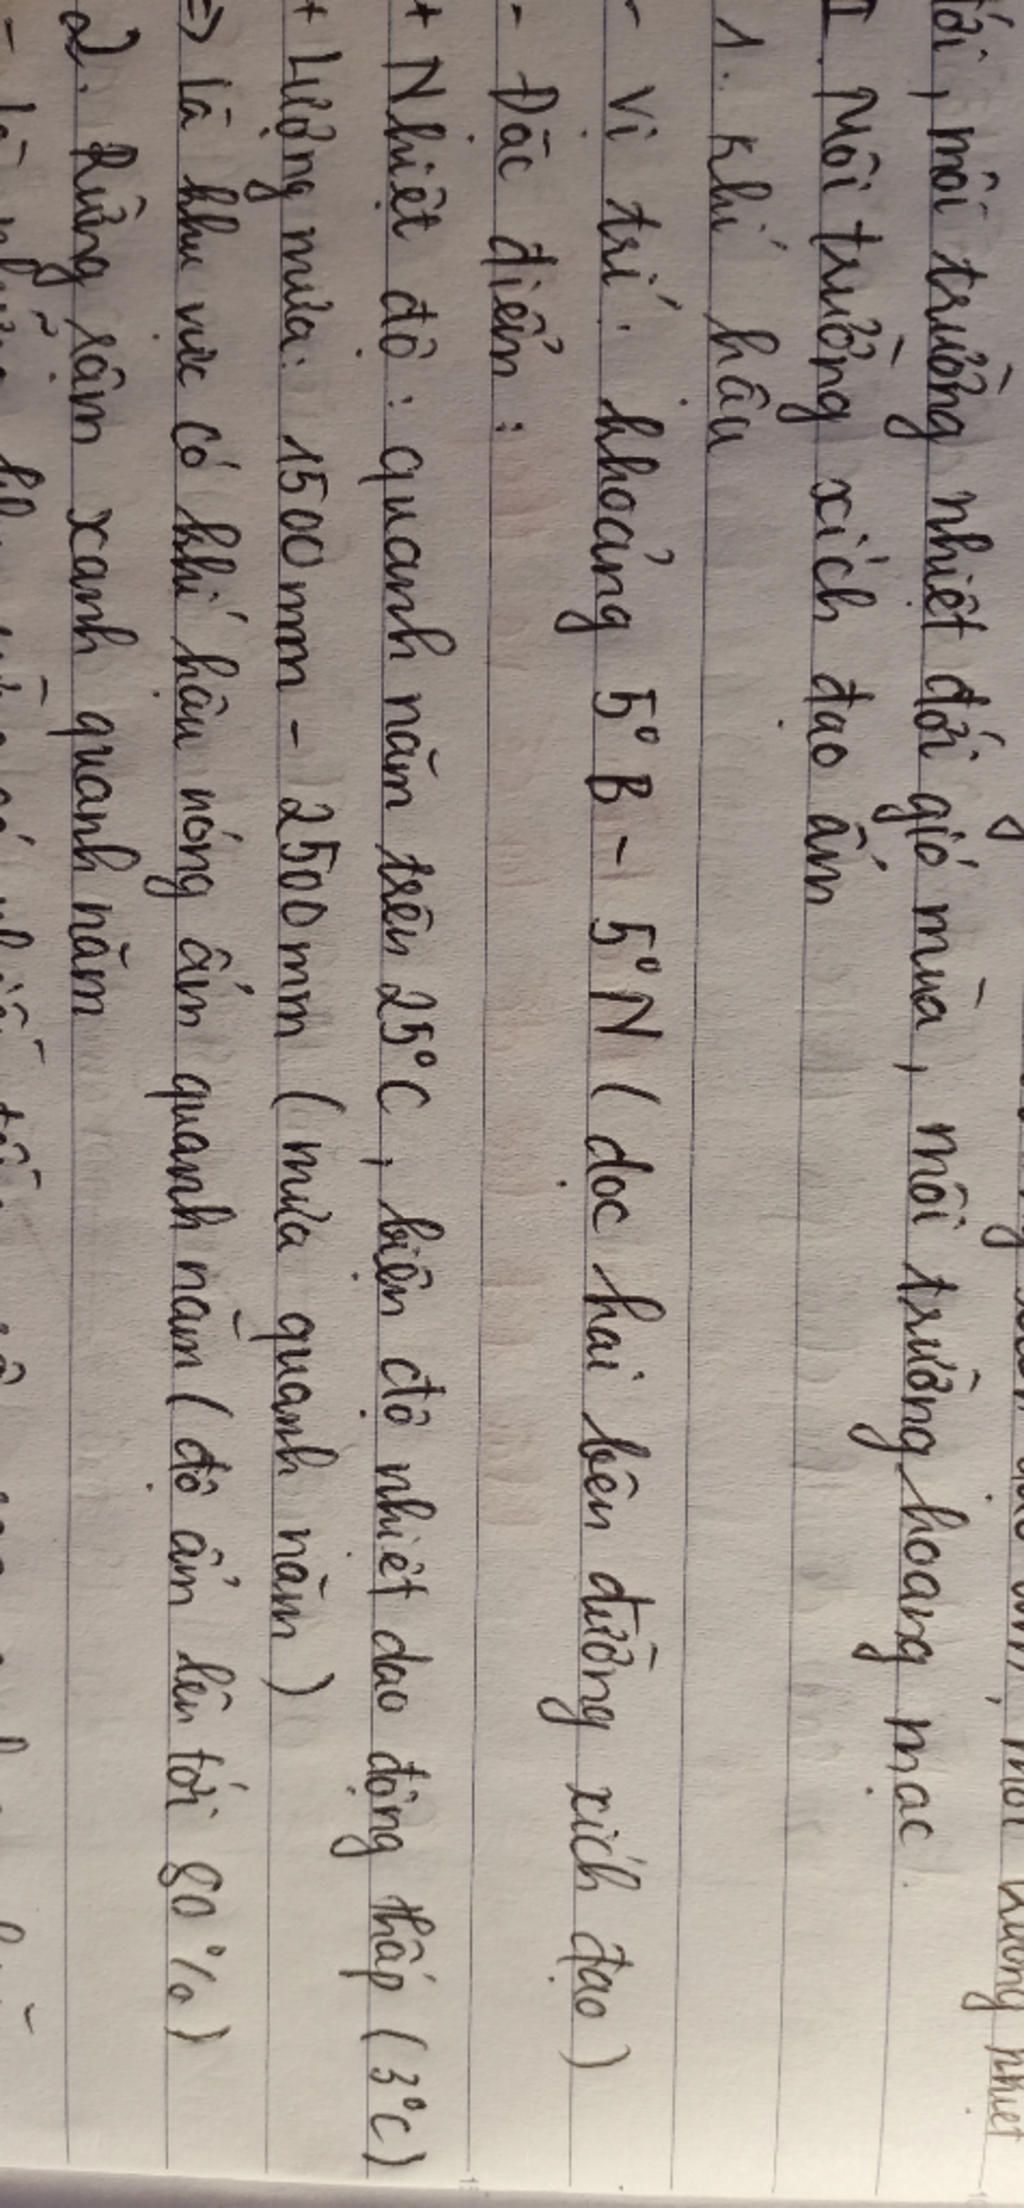 môi trường nhiệt
đới, môi trường nhiệt đới gió mùa, môi trường hoang mạc.
I. Môi trường xích đạo ẩm
1. Khí hậu
- Vị trí: khoảng 5°B - 5°N (dọc hai bên đường xích đạo)
- Đặc điểm:
+ Nhiệt độ: quanh năm trên 25°C, biên độ nhiệt dao động thấp (3°C)
+ Lượng mưa: 1500mm - 2500mm (mưa quanh năm)
=> là khu vực có khí hậu nóng ẩm quanh năm (độ ẩm lên tới 80%)
2. Rừng rậm xanh quanh năm